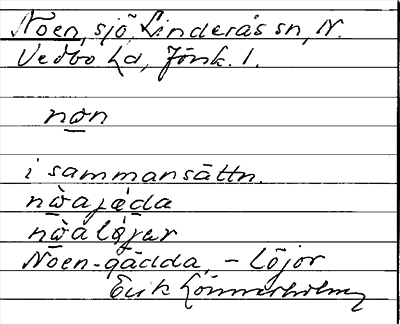 Noen, sjö, Linderås sn, N.
Vedbo hd, Jönk. l.
nωn
i sammansättn.
nὼajæ̀da
nὼalø̀jar
Noen-gädda, - löjor
Erik Lönnerholm